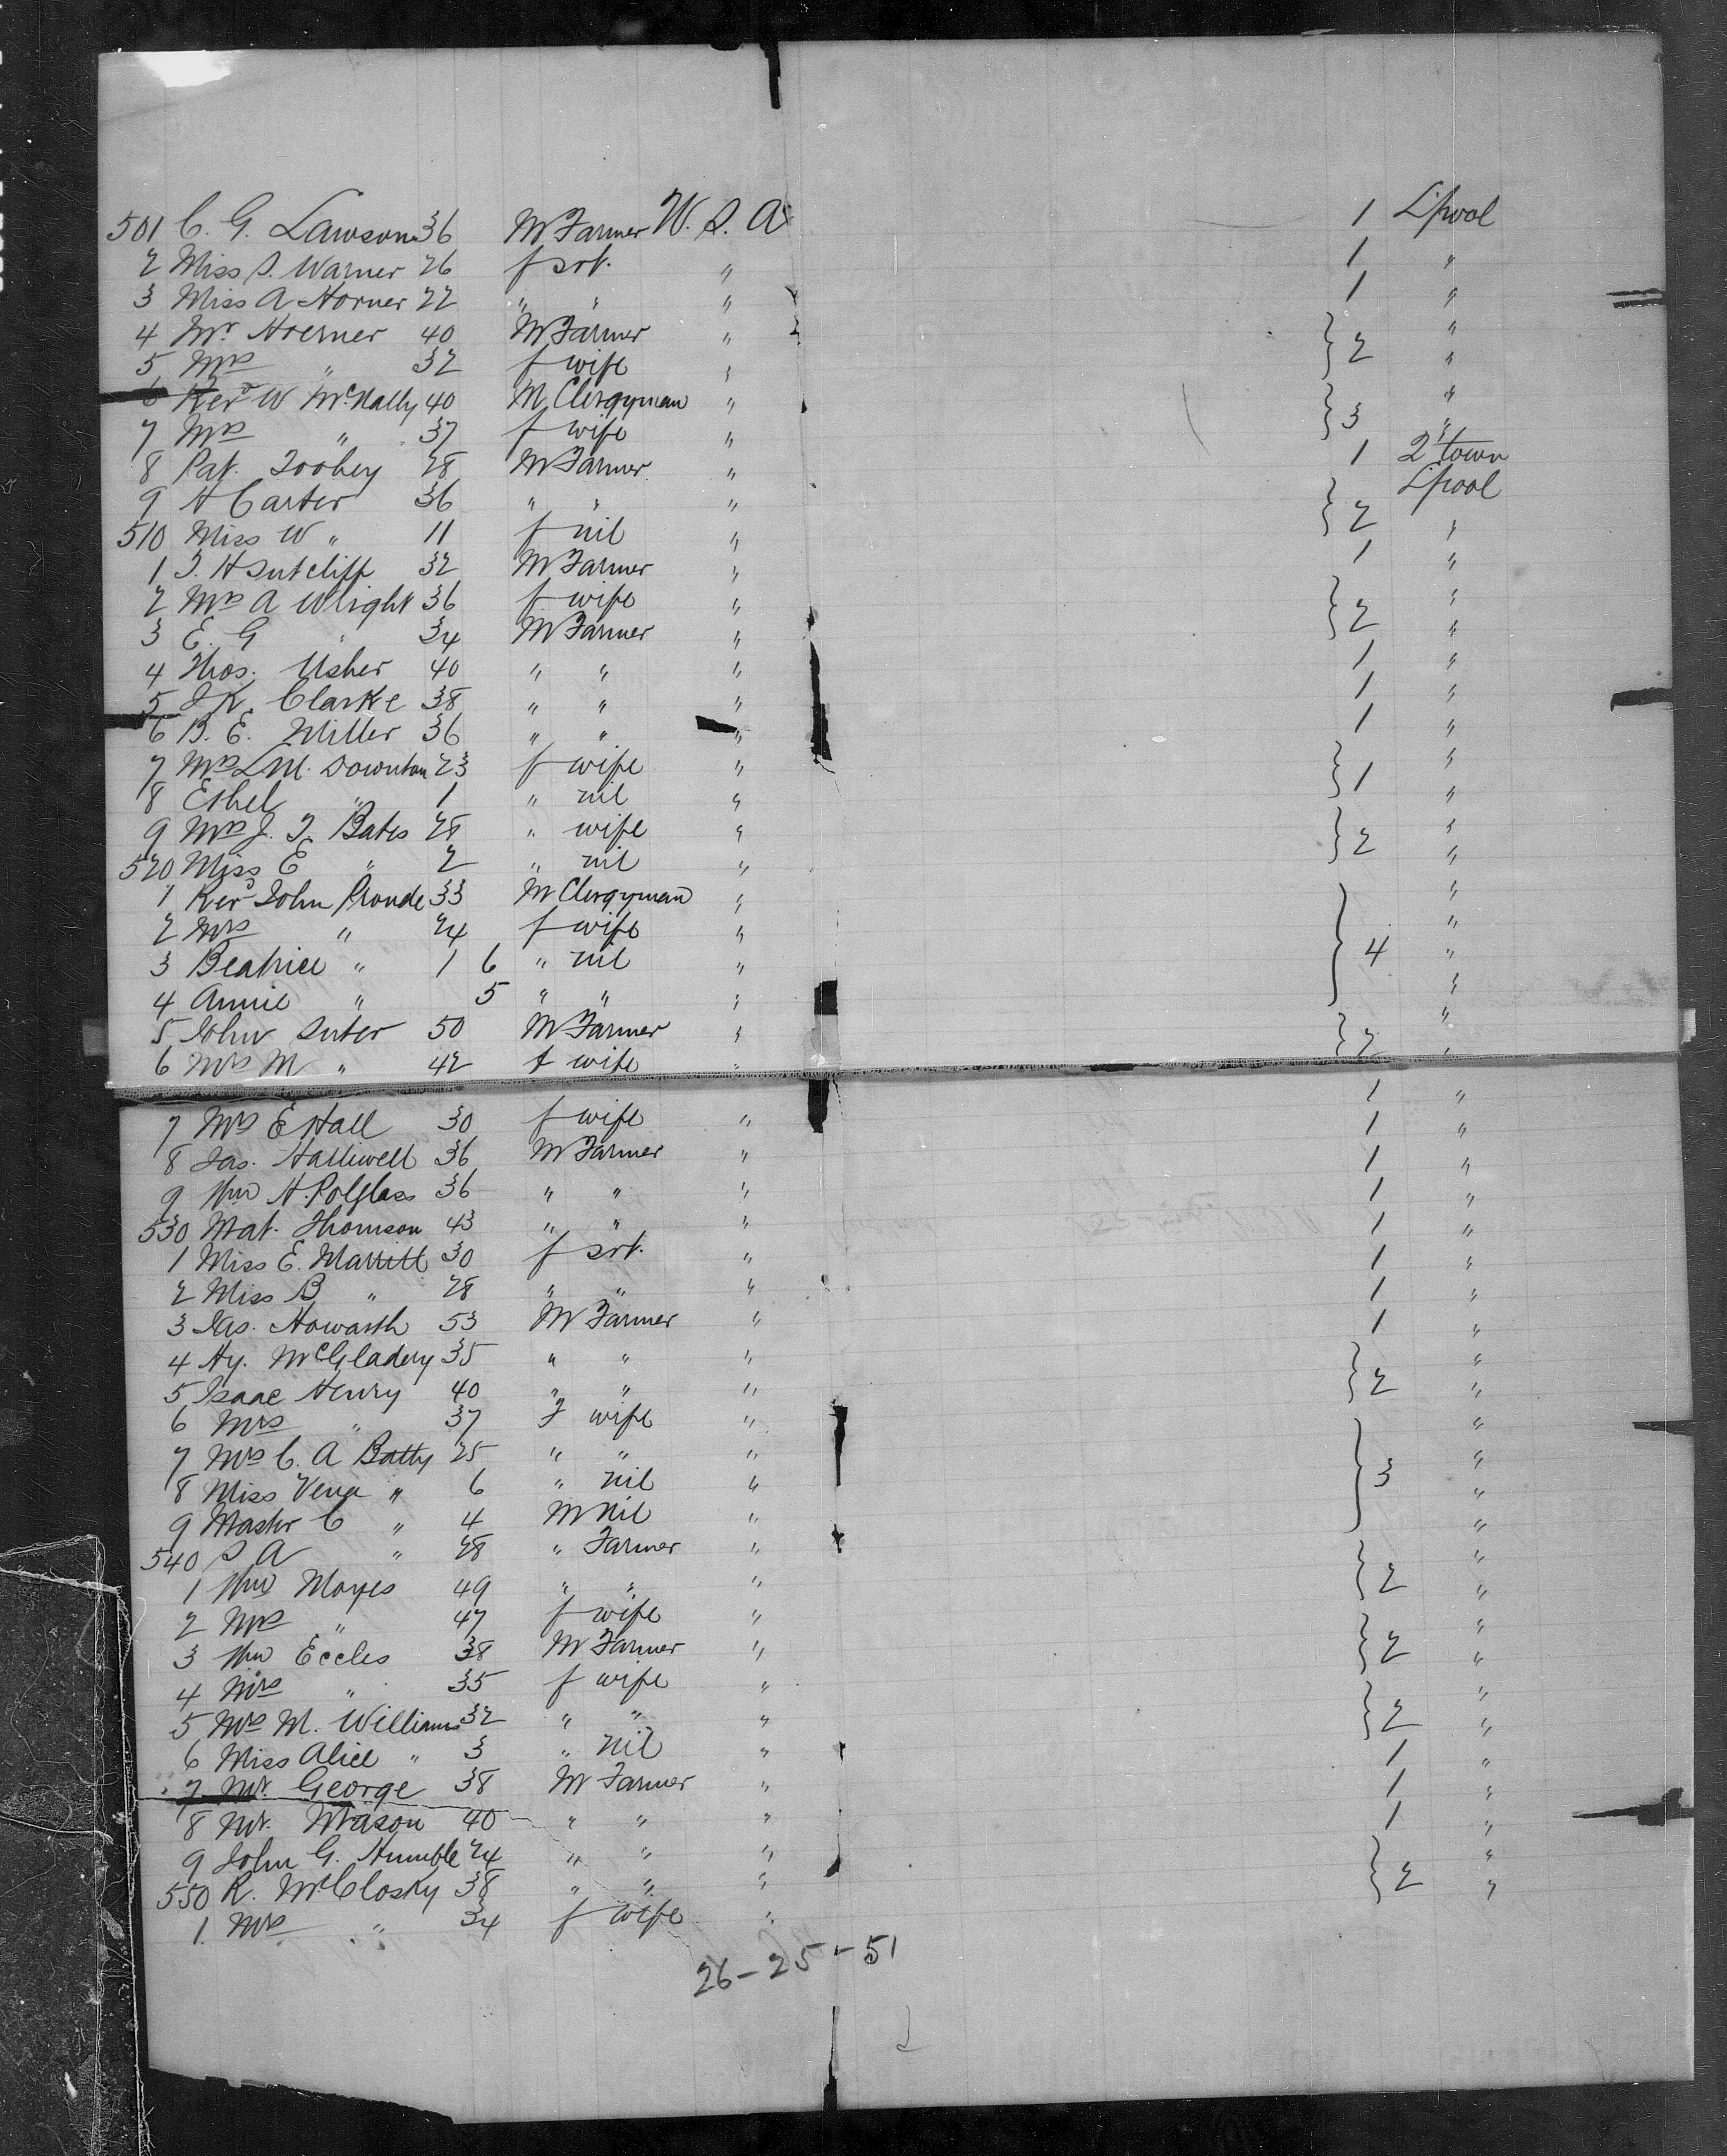 501 C. G. Lawson 36 M Farmer U. S. A 1 L'pool
2 Miss S. Warner 26 f srt. " 1 "
3 Miss A Horner 22 " " " 1 "
4 Mr. Hoerner 40 M Farmer " } 2 "
5 Mrs " 32 f wife " "
6 Revd W McNally 40 M Clergyman " } 3 "
7 Mrs " 37 f wife " "
8 Pat. Toohey 28 M Farmer " 1 2'town
9 A Carter 36 " " " } 2 L'pool
510 Miss W " 11 f nil " "
1 T. H Sutcliff 32 M Farmer " 1 "
2 Mrs A Wright 36 f wife " } 2 "
3 E. G " 34 M Farmer " "
4 Thos. Usher 40 " " " 1 "
5 J K. Clarke 38 " " " 1 "
6 B. E. Miller 36 " " " 1 "
7 Mrs L M. Downton 23 f wife " } 1 "
8 Ethel " 1 " nil " "
9 Mrs J. T. Bates 28 " wife " } 2 "
520 Miss E " 2 " nil " "
1 Revd John Pronde 33 M Clergyman " } 4 "
2 Mrs " 24 f wife " "
3 Beatrice " 1 6 " nil " "
4 Annie " 5 " " " "
5 John Suter 50 M Farmer " } 2 "
6 Mrs M " 42 f wife " "
7 Mrs E Hall 30 f wife " 1 "
8 Jas. Halliwell 36 M Farmer " 1 "
9 Wm H. Polglass 36 " " " 1 "
530 Mat. Thomson 43 " " " 1 "
1 Miss E. Marritt 30 f srt. " 1 "
2 Miss B " 28 " " " 1 "
3 Jas. Howarth 53 M Farmer " 1 "
4 Hy. McGladery 35 " " " 1 "
5 Isaac Henry 40 " " " } 2 "
6 Mrs " 37 F wife " "
7 Mrs C. A Batty 25 " " " } 3 "
8 Miss Vena " 6 " nil " "
9 Master C " 4 M nil " "
540 S A " 28 " Farmer " "
1 Wm Moyes 49 " " " } 2 "
2 Mrs " 47 f wife " "
3 Wm Eccles 38 M Farmer " } 2 "
4 Mrs " 35 f wife " "
5 Mrs M. Williams 32 " " " } 2 "
6 Miss Alice " 3 " nil " "
7 Mr. George 38 M Farmer " 1 "
8 Mr. Mason 40 " " " 1 "
9 John G. Humble 24 " " " 1 "
550 R. McClosky 38 " " " } 2 "
1 Mrs " 34 f wife " "
26 - 25 - 51